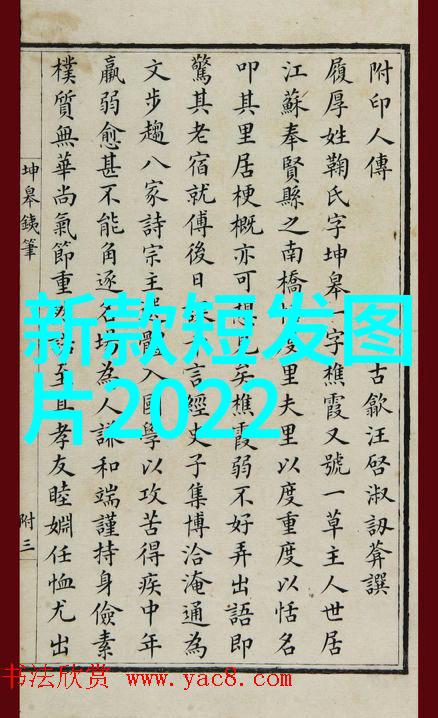 附印人傳
古歙汪啓淑訒葊譔
履厚姓鞠氏字坤皋一字樵霞又號一草主人世居
江蘇奉賢縣之南橋度里夫里以度重度以恬名
叩其里居梗概亦可想見矣樵霞弱不好弄出語即
驚其老宿就傅後日言經史子集博洽淹通為
文步趨八家詩宗主體入國學以攻苦得疾中年
羸弱愈甚不能角逐名場為人謙和端謹持身儉素
樸質無華尚氣節重諾至其孝友睦婣任恤尤出
坤皋銕筆
附三
新款短发图
片2022
书法欣赏 www.yac8.com